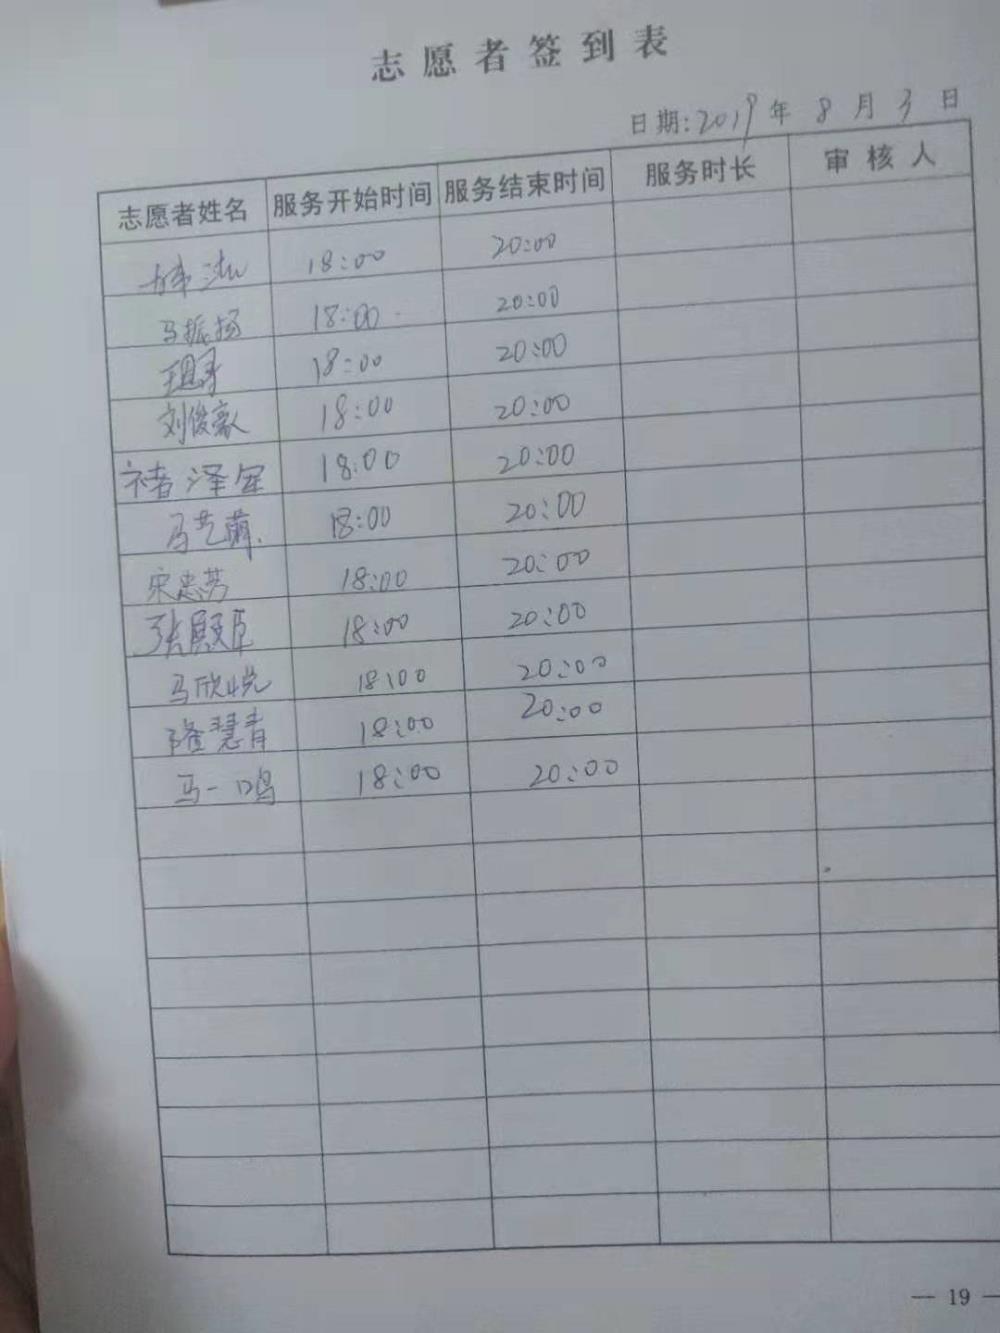 志愿者签到表
日期:2019年8月3日
志愿者姓名 服务开始时间 服务结束时间 服务时长 审核人
18:00 20:00
马振扬 18:00 20:00
18:00 20:00
刘俊豪 18:00 20:00
褚泽军 18:00 20:00
马艺萌 18:00 20:00
宋忠芳 18:00 20:00
张殿臣 18:00 20:00
马欣悦 18:00 20:00
隆慧青 18:00 20:00
马一鸣 18:00 20:00
— 19 —